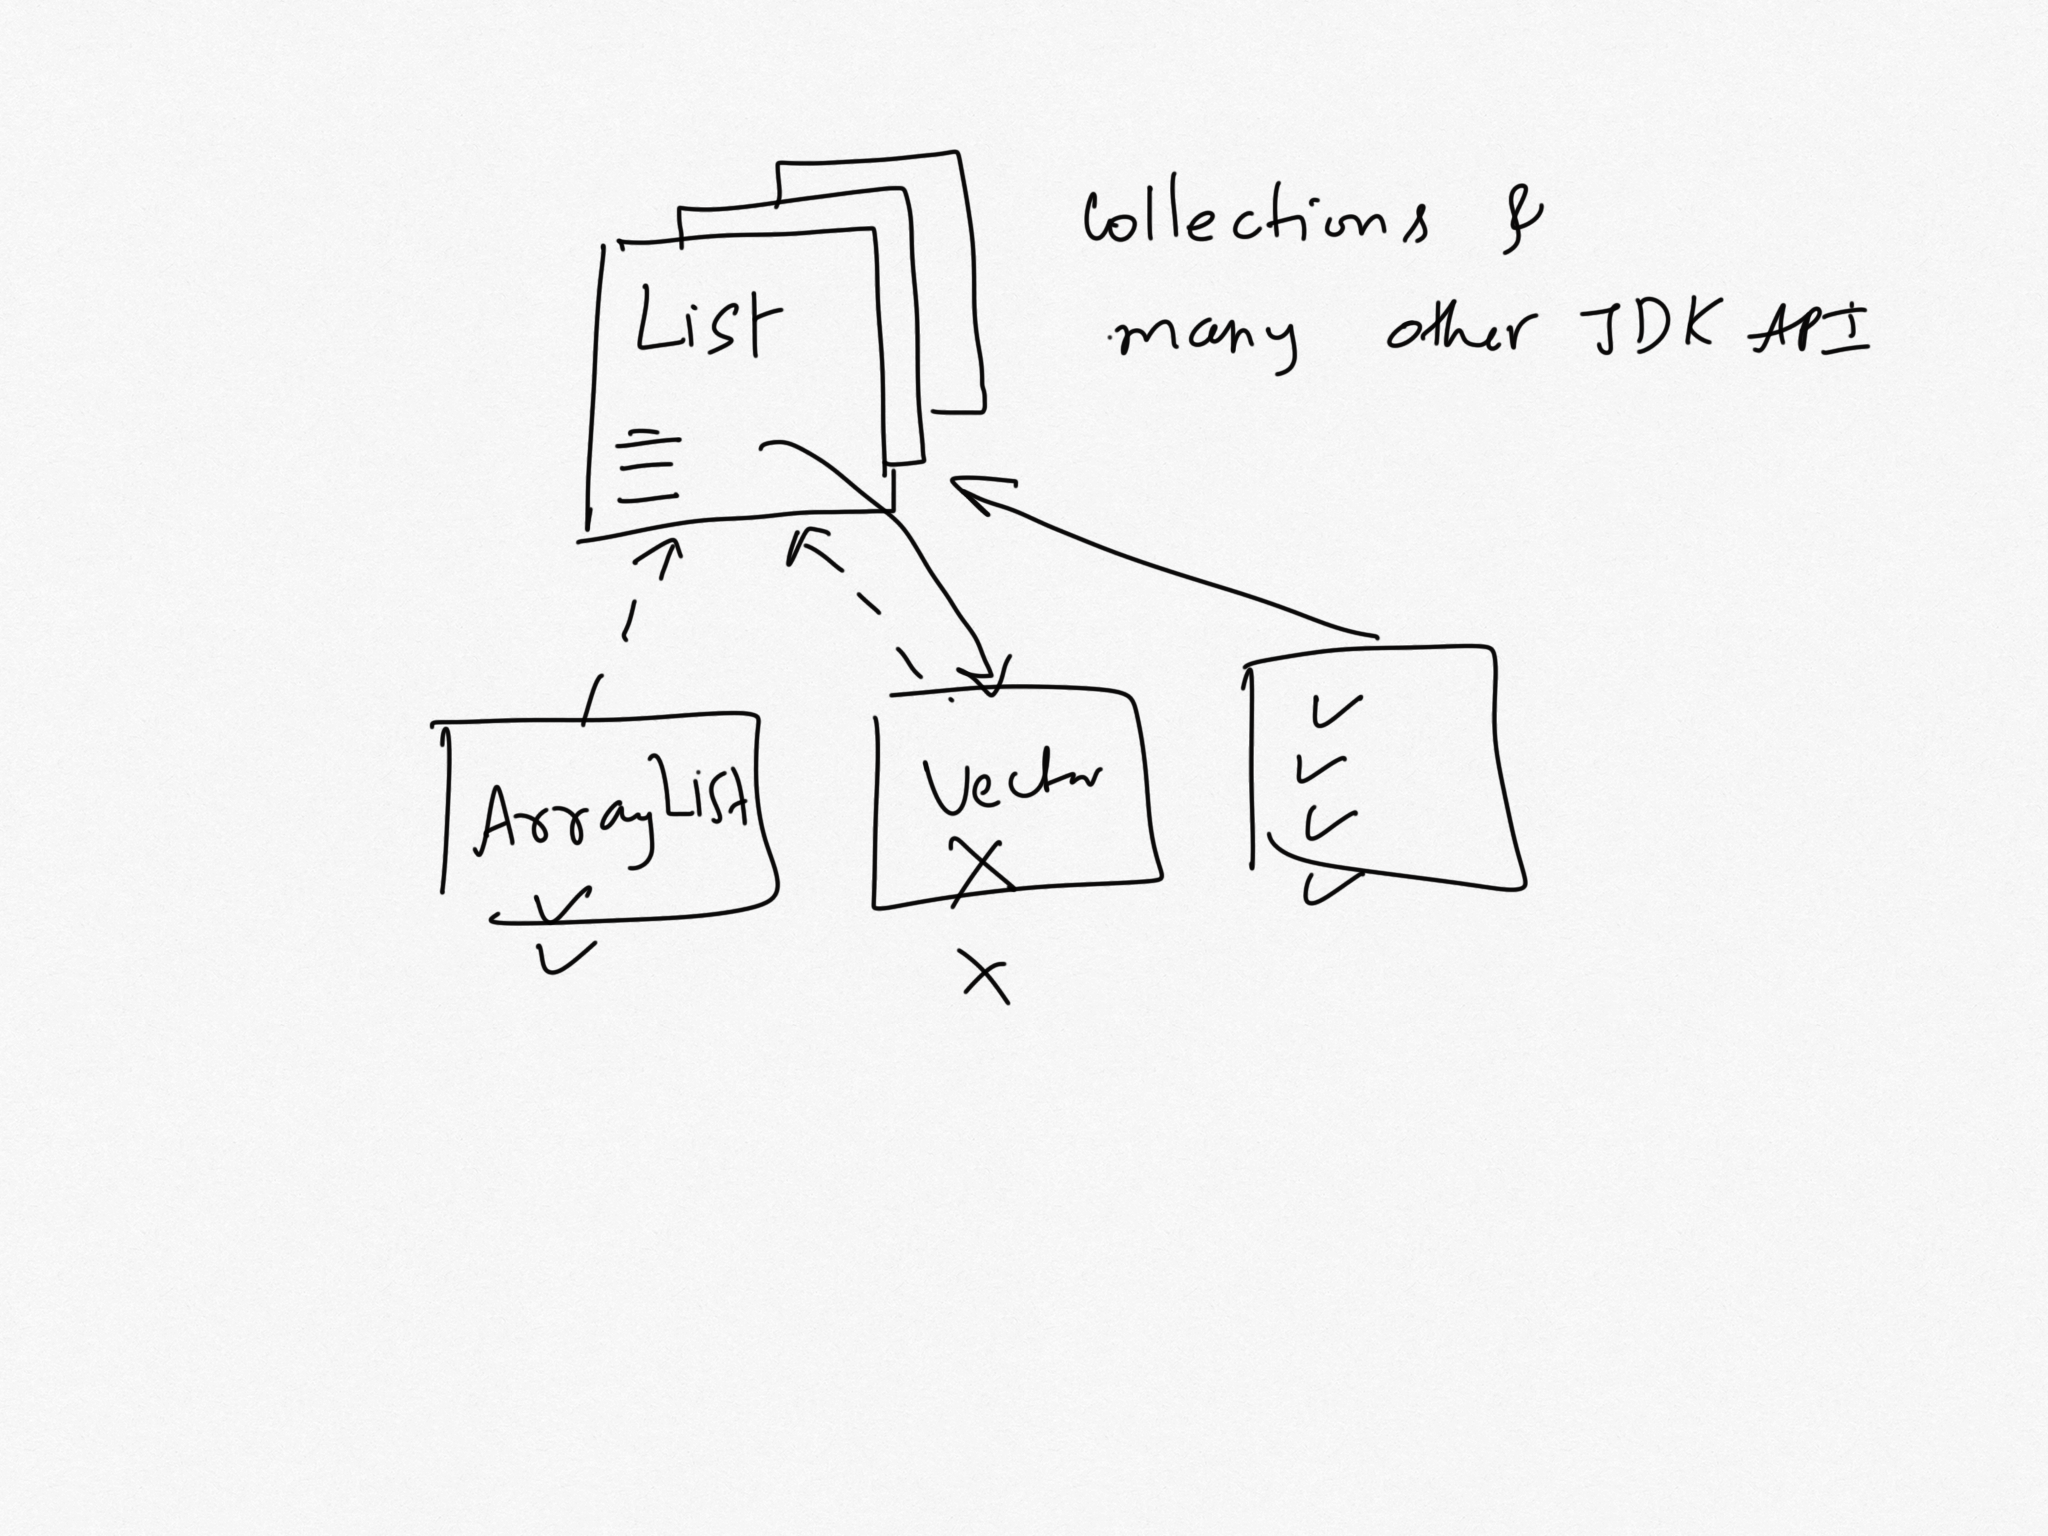 Collections &
many other JDK API
List
ArrayList
Vector